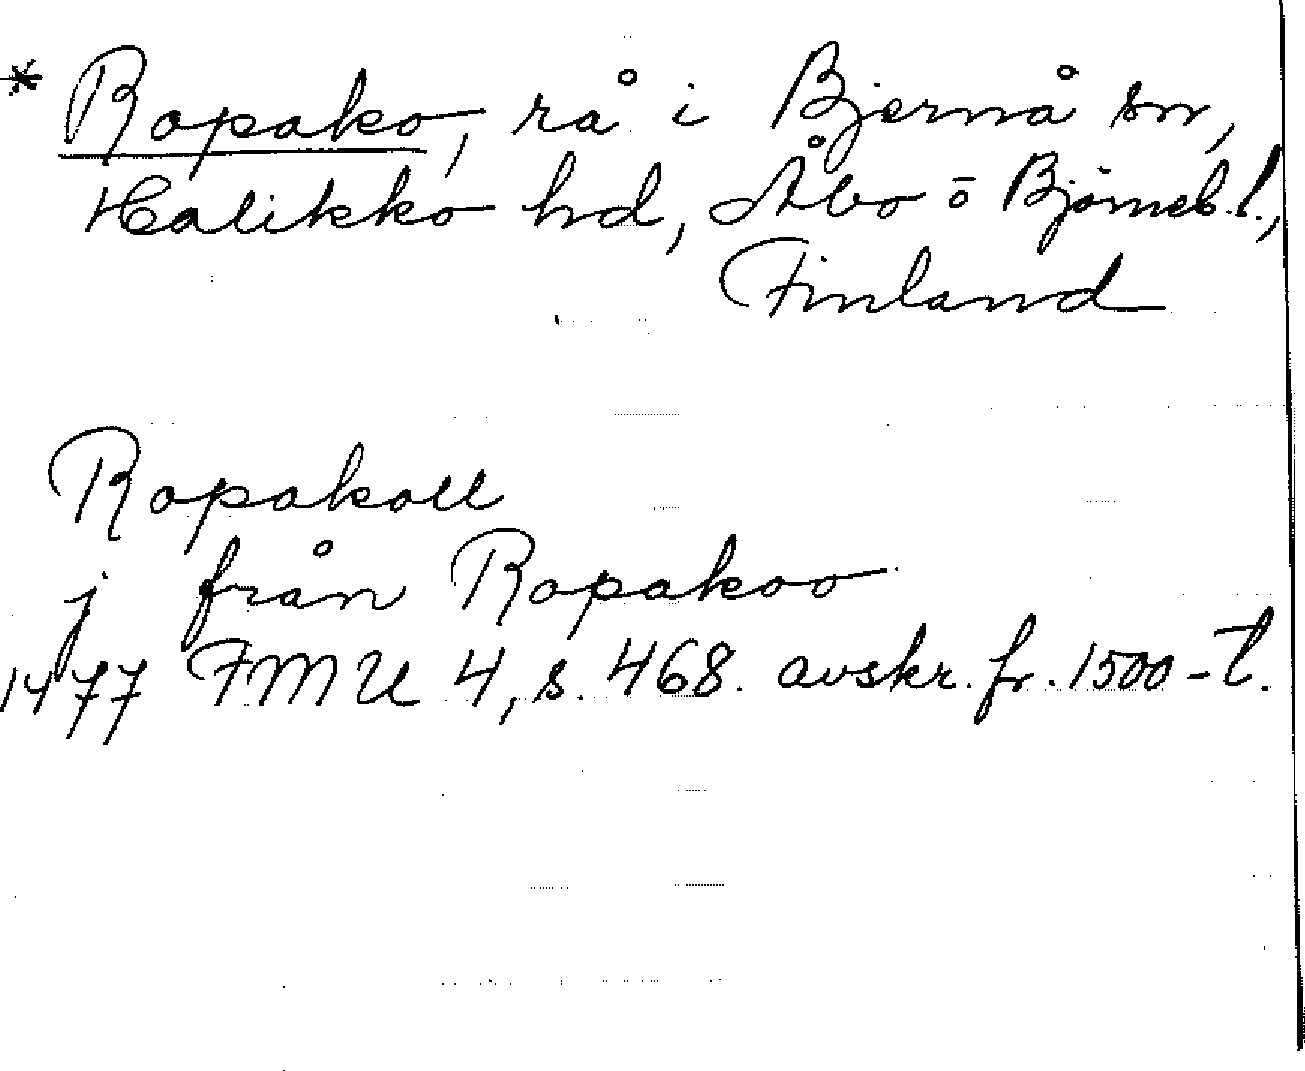 * Ropako, rå i Bjernå sn,
Halikko hd, Åbo o Björneb. l.,
Finland
Ropakoll
j från Ropakoo
1477 FMU 4, s. 468. avskr. fr. 1500-t.